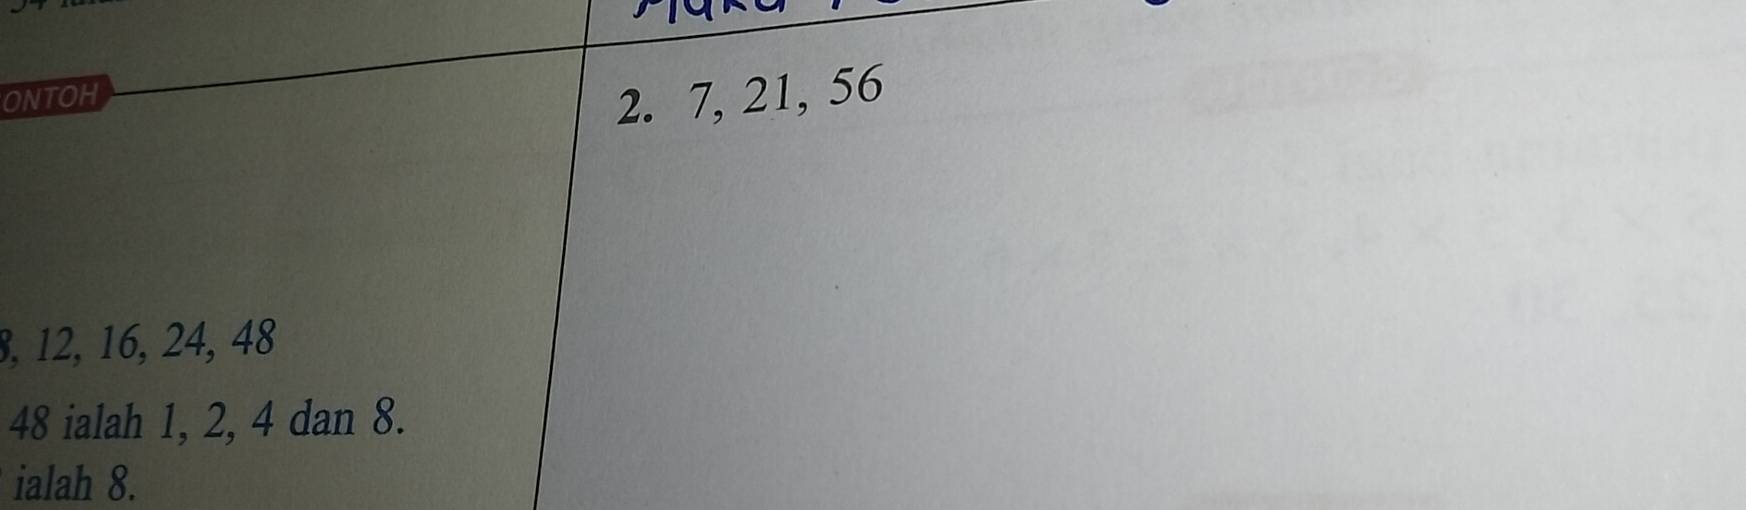 ONTOH
2. 7, 21, 56
8, 12, 16, 24, 48
48 ialah 1, 2, 4 dan 8.
ialah 8.